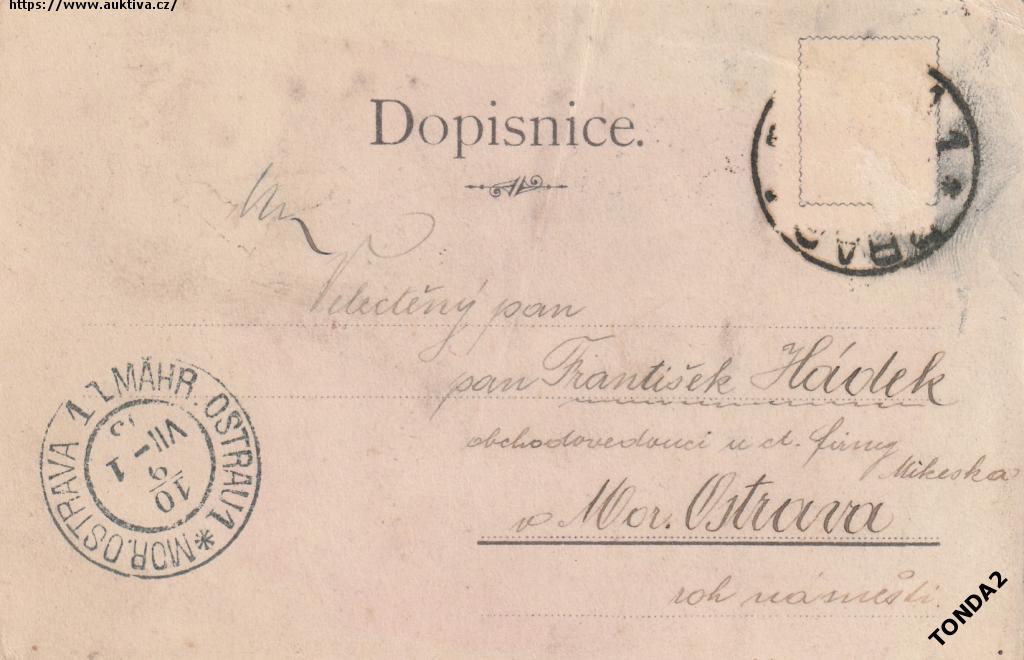 https://www.auktiva.cz/
Dopisnice.
Velectěný pan
pan František Hádek
obchodovedoucí u ct. firmy
Mikeska
v Mor. Ostrava
roh náměstí.
MÄHR. OSTRAU 1 * MOR. OSTRAVA 1
10
9
VII – 1
PRAG
1 *
TONDA2